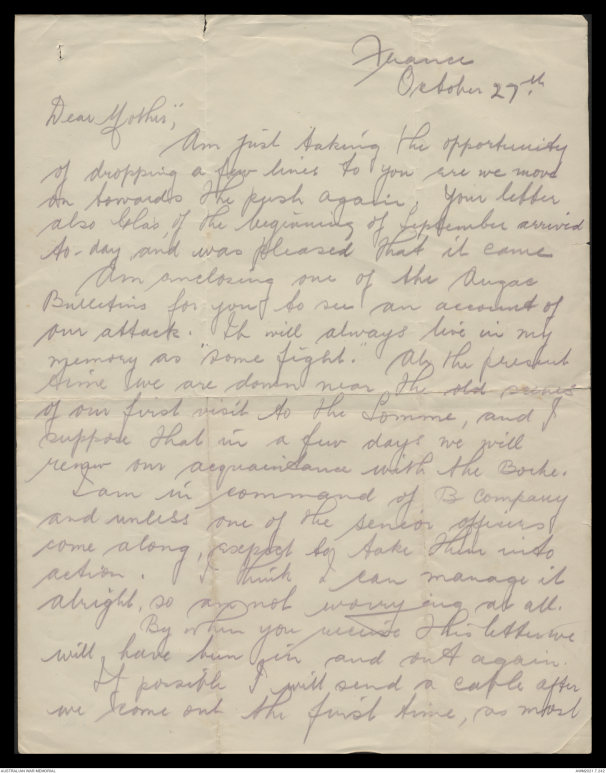 France
October 27th.
Dear Mother;,
Am just taking the opportunity
of dropping a few lines to you ere we move
on towards the push again. Your letter
also Lola's, of the beginning of September arrived
to-day and was pleased that it came
Am enclosing one of the Anzac
Bulletins for you to see an account of
our attack. It will always live in my
memory as "some fight." At the present
time we are down near the old scenes
of our first visit to the Somme, and I
suppose that in a few days we will
renew our acquaintance with the Boche.
I am in command of B Company
and unless one of the senior officers
come along, expect to take them into
action. I think I can manage it
alright, so am not worrying at all.
By when you receive this letter we
will have been in and out again.
If possible I will send a cable after
we come out the first time, as most
AUSTRALIAN WAR MEMORIAL
AWM2021.7.247